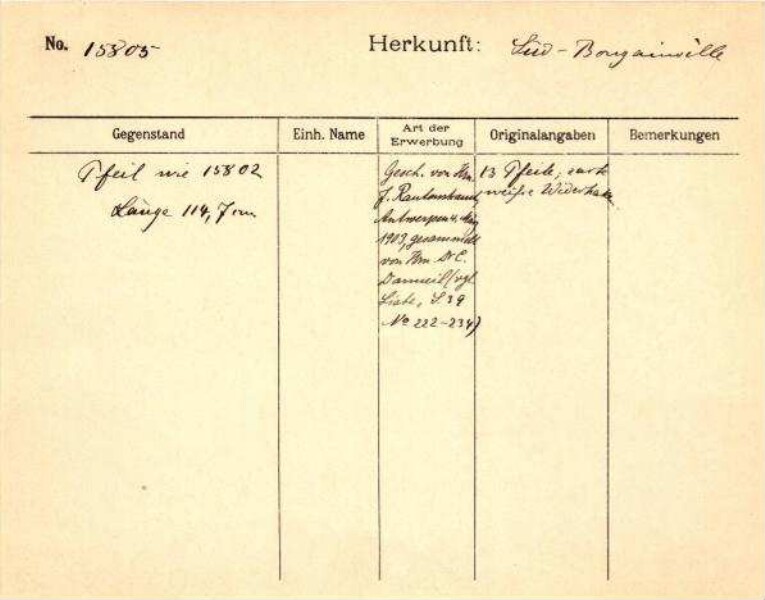 No. 15805
Herkunft: Süd-Bougainville
Gegenstand
Einh. Name
Art der Erwerbung
Originalangaben
Bemerkungen
Pfeil wie 15802
Länge 114,7 cm
Gesch. von Hrn.
J. Rautenstrauch,
Antwerpen 4. Mai
1909, gesammelt
von Hrn Dr C.
Danneil (vgl.
Liste, S. 39
No 222-234)
13 Pfeile,
weiße Widerhaken